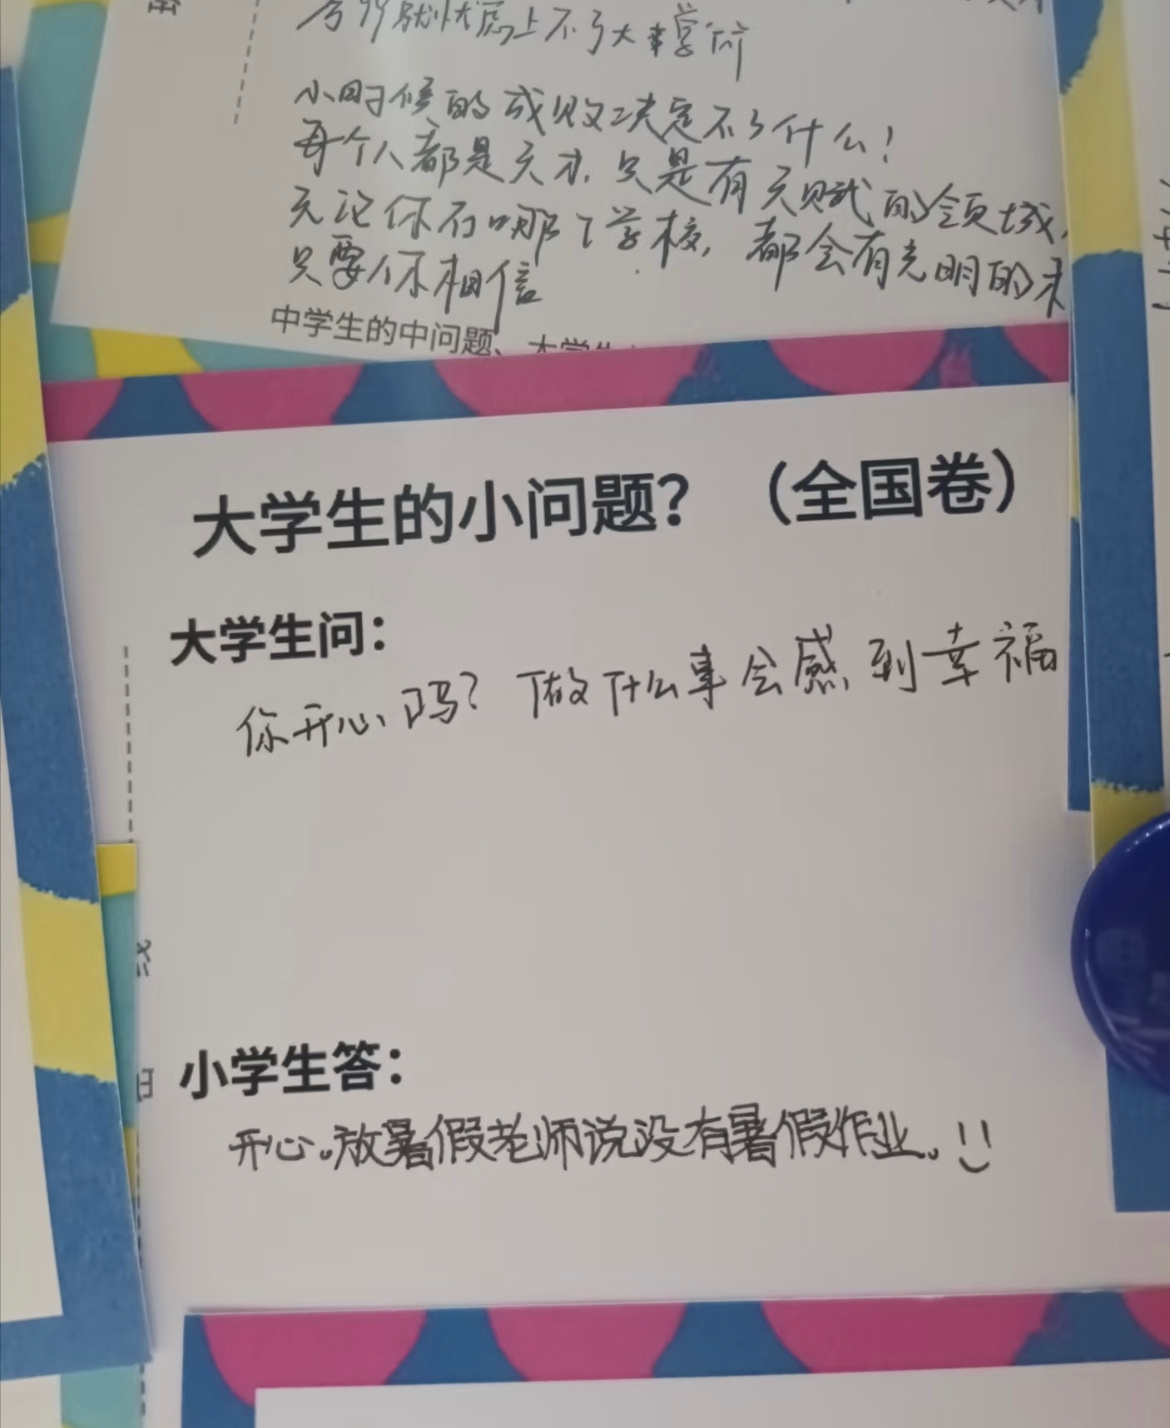 上不了大学
小时候的成败决定不了什么!
每个人都是天才,只是有天赋的领域,
无论你在哪个学校,都会有光明的未
只要你相信
中学生的中问题、大学生
大学生的小问题?(全国卷)
大学生问:
你开心吗?做什么事会感到幸福
小学生答:
开心。放暑假老师说没有暑假作业。